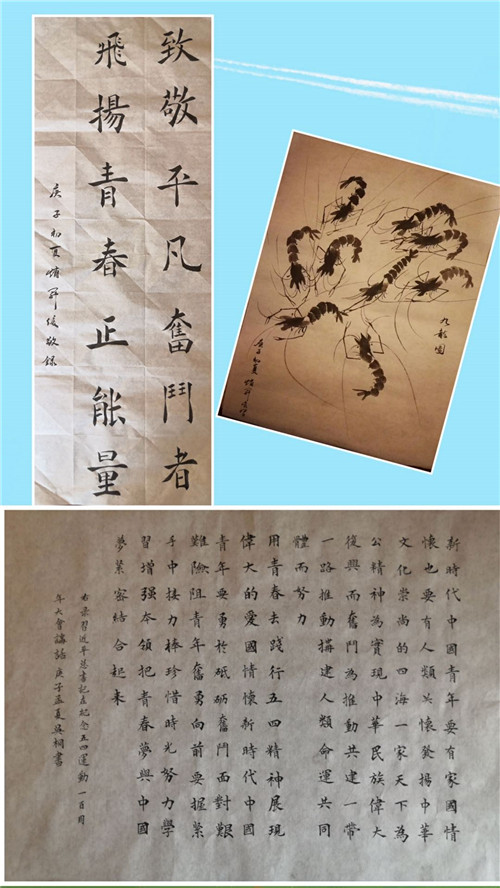 致敬平凡奮鬥者
飛揚青春正能量
庚子初夏敬錄
九虾圖
庚子初夏
新時代中國青年要有家國情
懷也要有人類关懷發揚中華
文化崇尚的四海一家天下為
公精神為實現中華民族偉大
復興而奮鬥為推動共建一帶
一路推動搆建人類命運共同
體而努力
用青春去踐行五四精神展現
偉大的愛國情懷新時代中國
青年要勇於砥礪奮鬥面對艱
難險阻青年奮勇向前要握緊
手中接力棒珍惜時光努力學
習增强本領把青春夢與中國
夢緊密結合起来
右录習近平总書記在紀念五四運動一百周
年大會講話庚子孟夏桐書